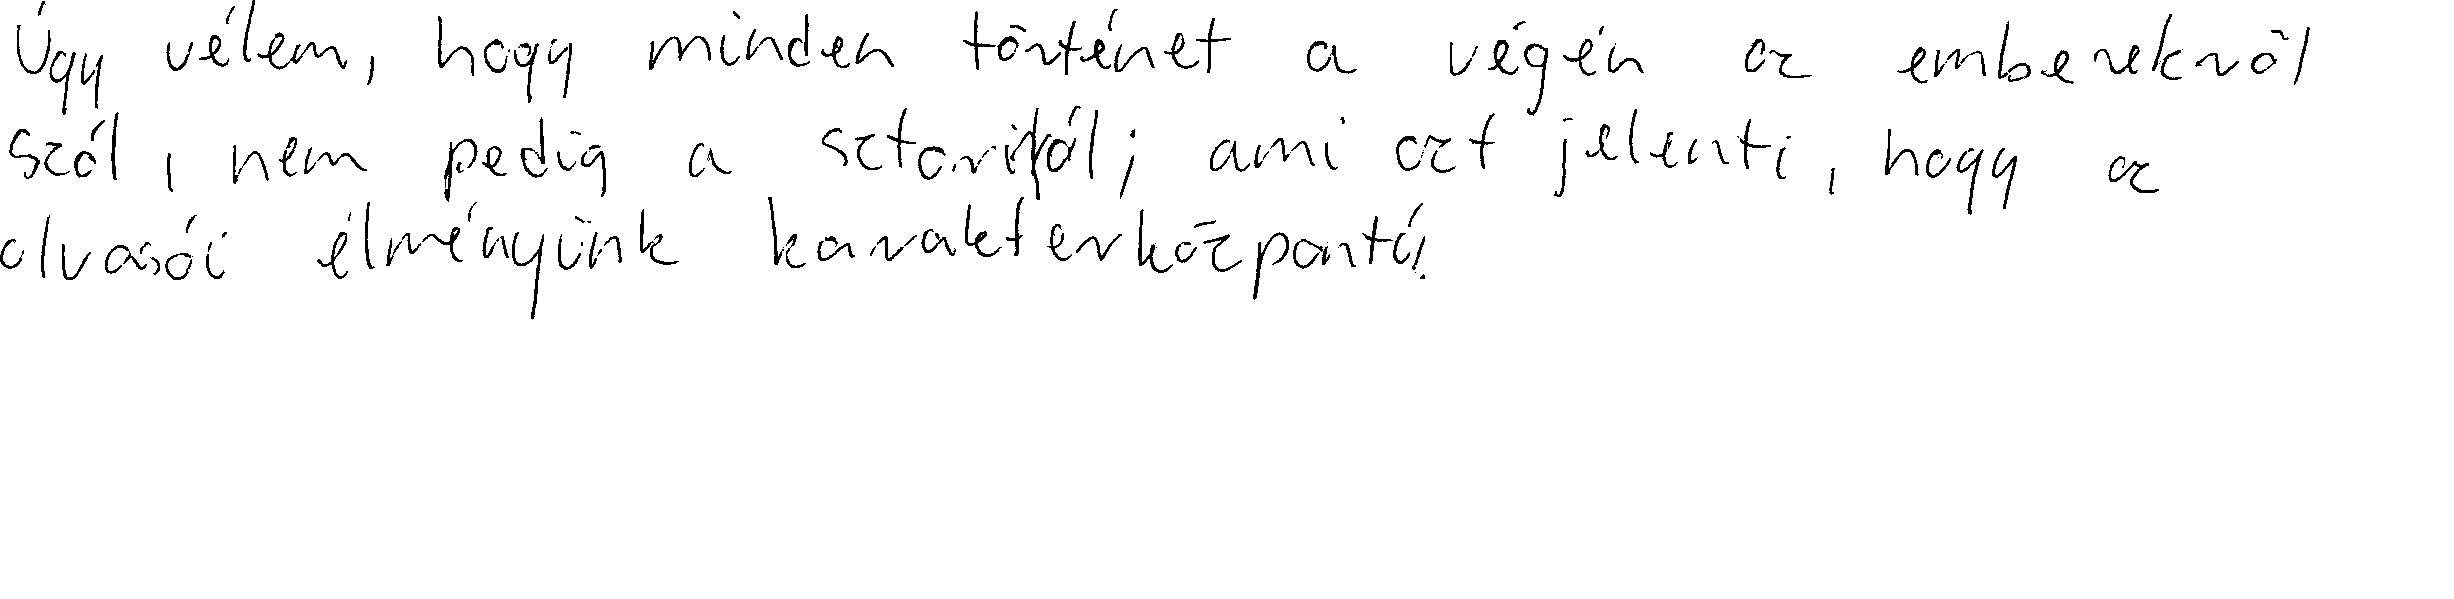 Úgy vélem, hogy minden történet a végén az emberekről
szól, nem pedig a sztoriról; ami azt jelenti, hogy az
olvasói élményünk karakterközpontú!